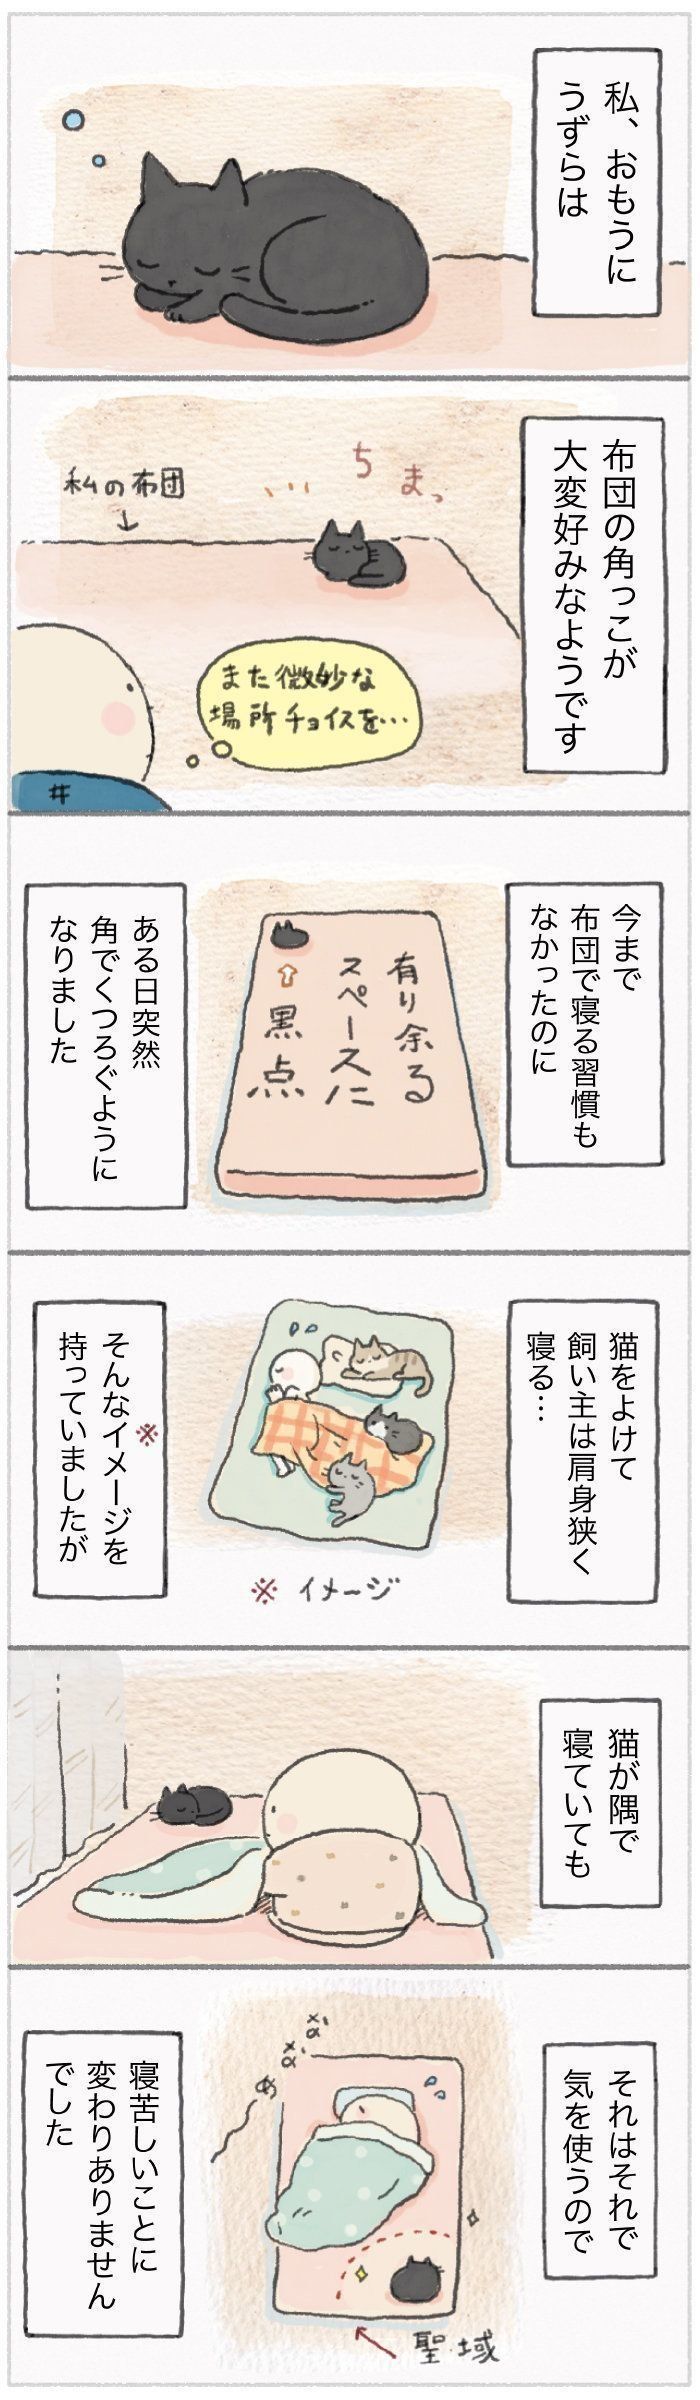 私、おもうに
うずらは
布団の角っこが
大変好みなようです
ちまっ
私の布団
また微妙な
場所チョイスを…
井
今まで
布団で寝る習慣も
なかったのに
有り余る
スペースに
黒点
ある日突然
角でくつろぐように
なりました
猫をよけて
飼い主は肩身狭く
寝る…
そんなイメージを
※
持っていましたが
※ イメージ
猫が隅で
寝ていても
それはそれで
気を使うので
聖域
寝苦しいことに
変わりありません
でした